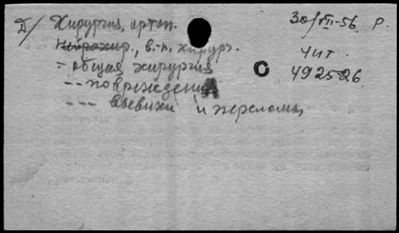 Д/ Хирургия, ортоп. 30/VII-56. Р.
Нейрохир., в.-п. хирург. Чит.
- общая хирургия С 492526
-- повреждения А
--- Вывихи и переломы